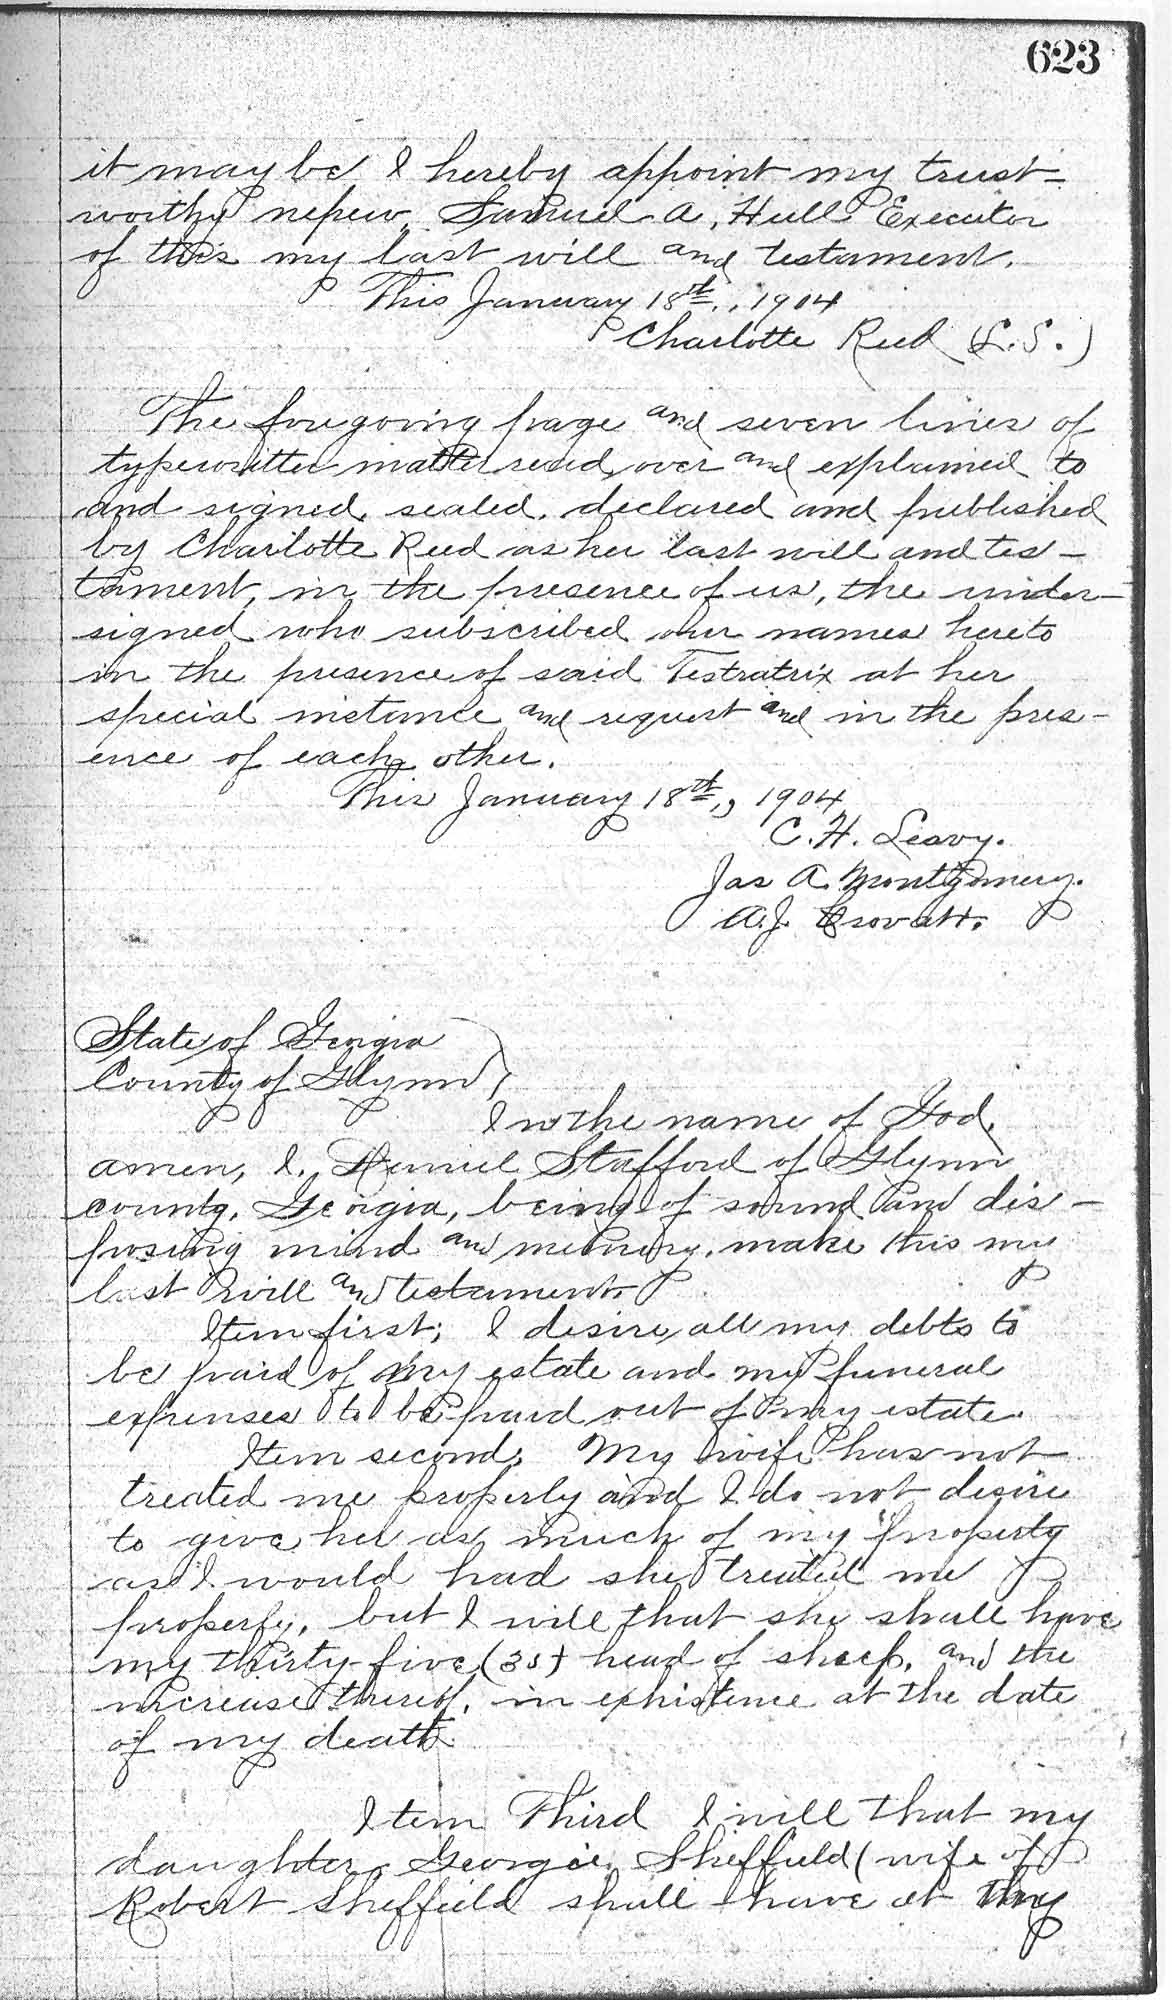 623
it may be I hereby appoint my trust-
worthy nepew, Samuel A, Hull Executor
of this my last will and testament.
This January 18th., 1904
Charlotte Reed (L.S.)
The foregoing page and seven lines of
typewritten matter read, over and explained to
and signed, sealed, declared and published
by Charlotte Reed as her last will and tes-
tament, in the presence of us, the under-
signed who subscribed our names hereto
in the presence of said Testratrix at her
special instance and request and in the pres-
ence of each other.
This January 18th., 1904
C. H. Leavy.
Jas A. Montgomery.
A. J. Crovatt.
State of Georgia
County of Glynn
In the name of God,
amen, I, Stafford of Glynn
county, Georgia, being of sound and dis-
posing mind and memory, make this my
last will and testament.
Item first; I desire all my debts to
be paid of my estate and my funeral
expenses to be paid out of my estate.
Item second. My wife has not
treated me properly and I do not desire
to give her as much of my property
as I would had she treated me
properly, but I will that she shall have
my thirty-five (35) head of sheep, and the
increase thereof, in exhistence at the date
of my death.
Item Third I will that my
daughter, Georgie Sheffield (wife of
Robert Sheffield shall have at my